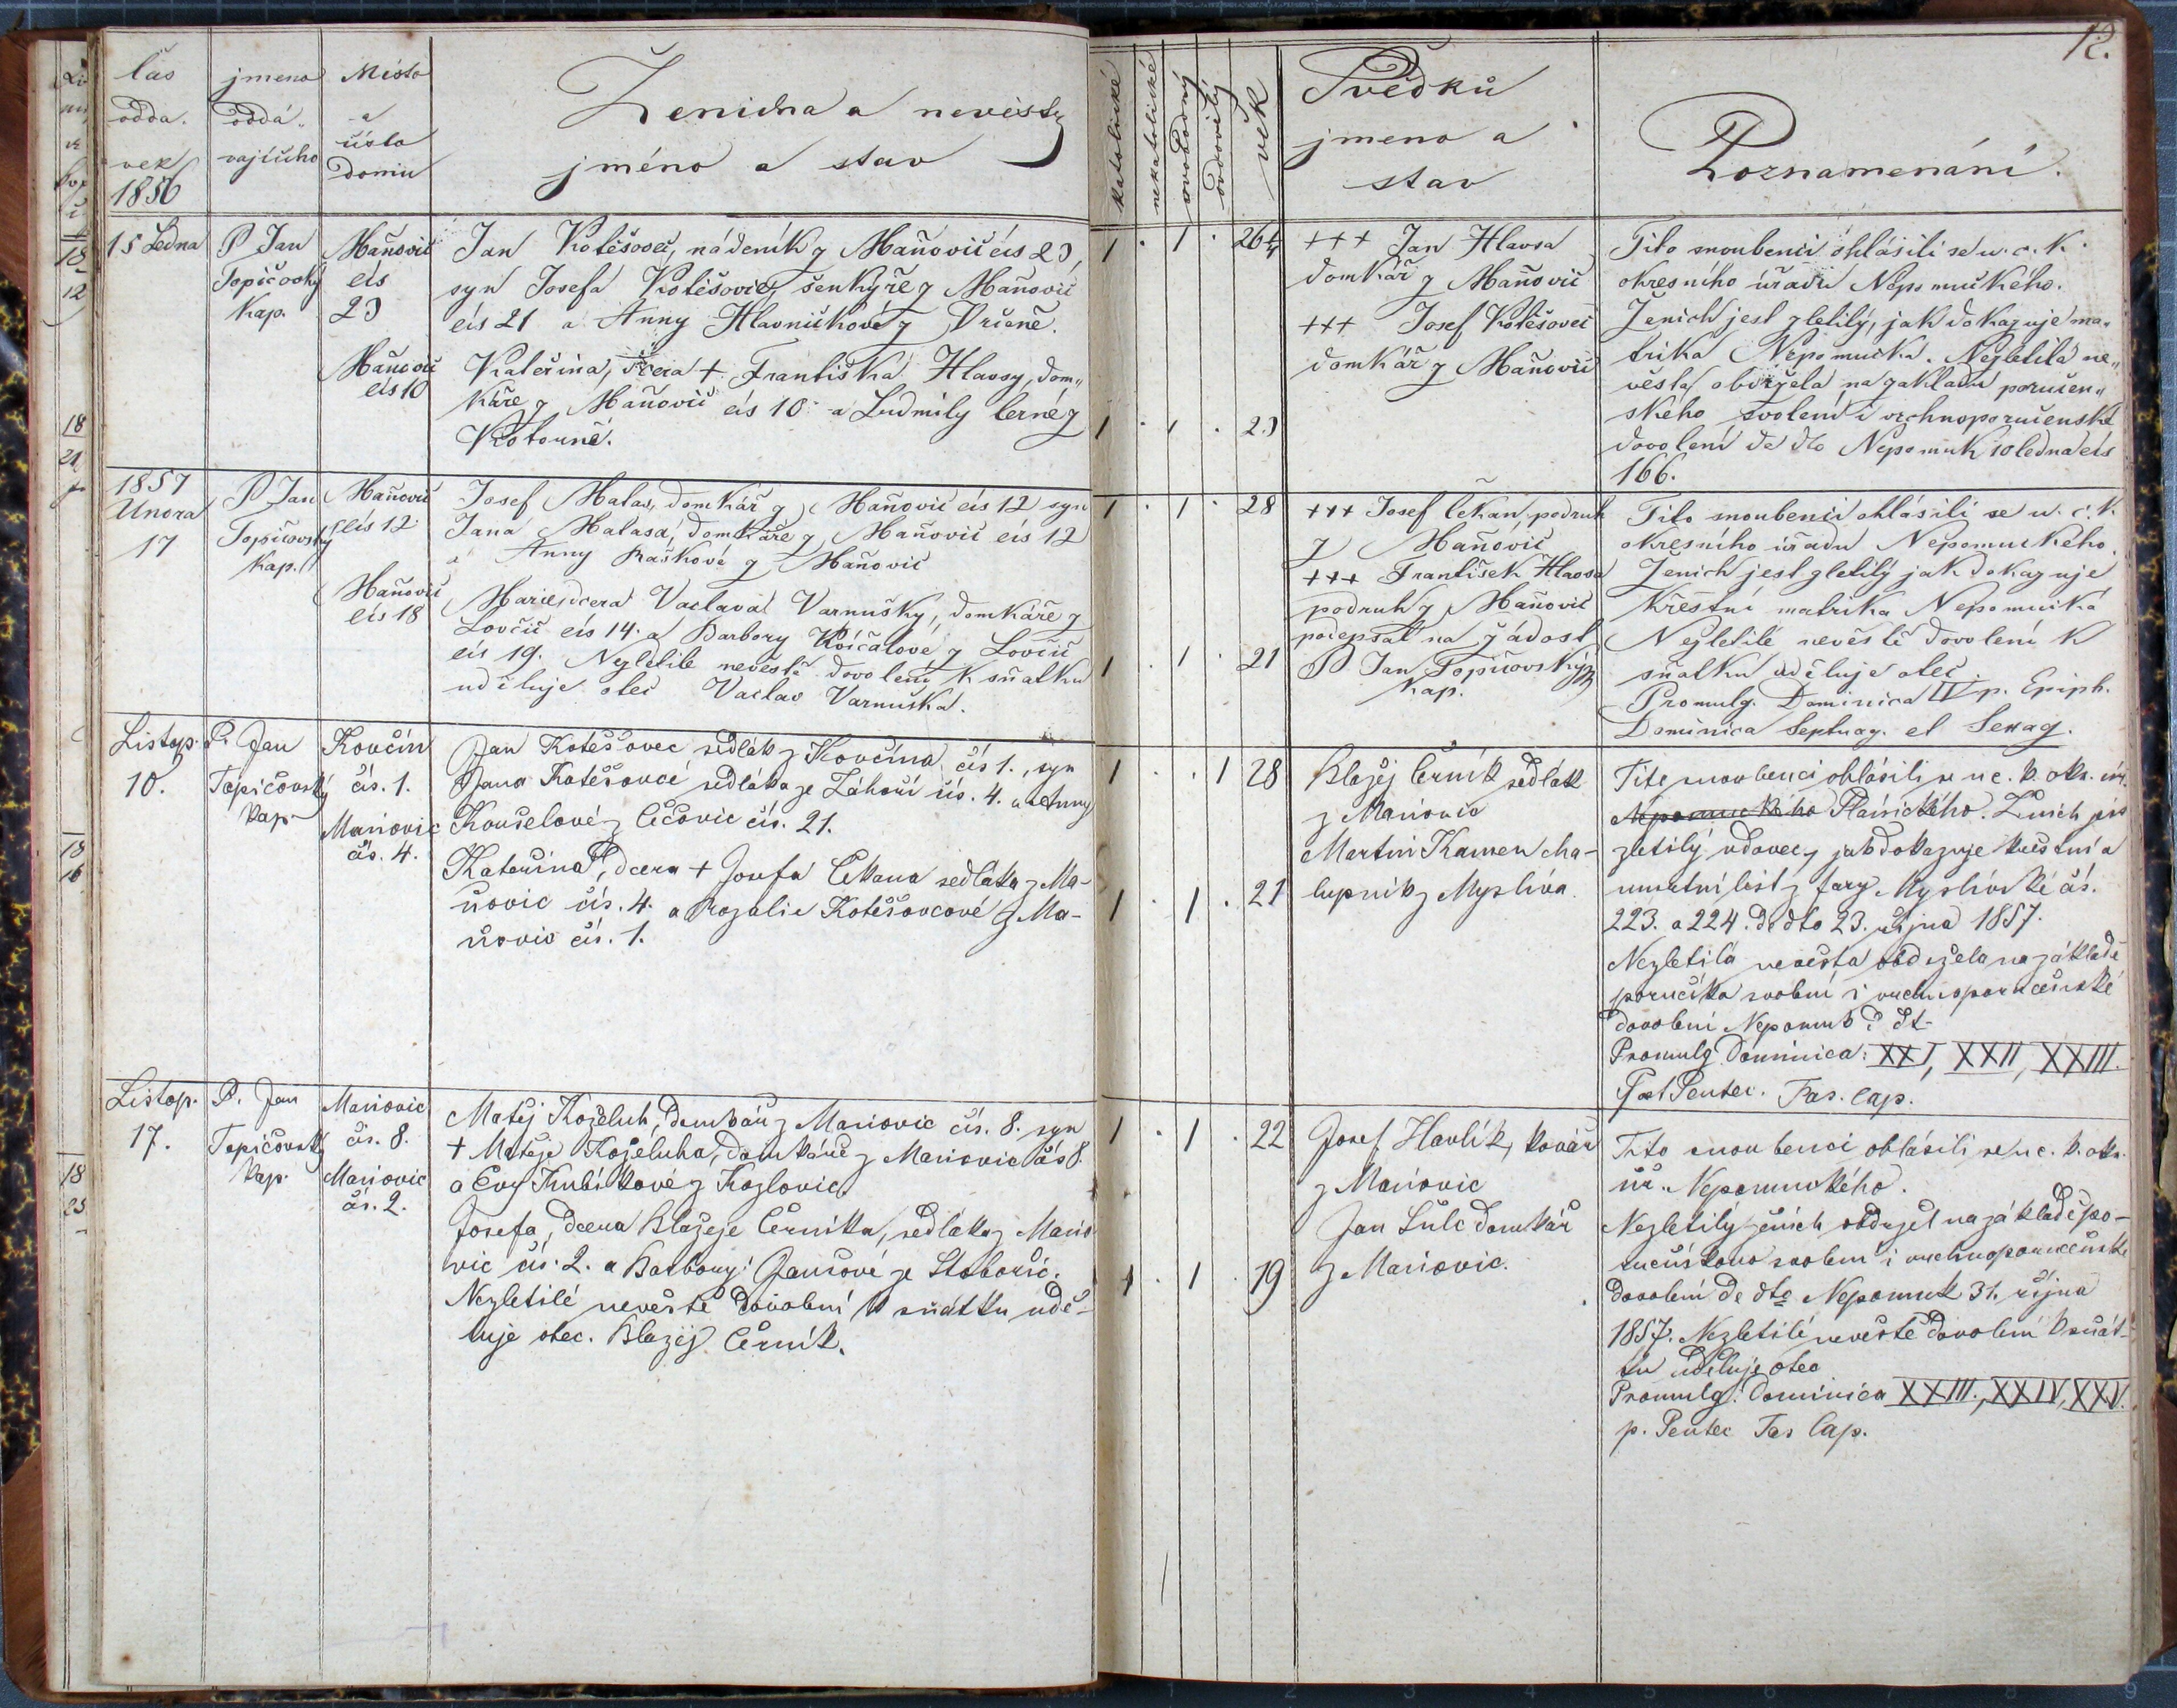 12.
čas
odda.
vek
1856
jmeno
oddá„
vajícího
Místo
a
číslo
domu
Ženicha a nevěsty
jméno a stav
katolické
nekatolické
svobodný
ovdovilý
věk
Svědků
jmeno a
stav
Poznamenání.
15 Ledna
P Jan
Topičovský
Kap.
Maňovic
čís
23
Maňovic
čís 10
Jan Kotěšovec, nádeník z Maňovic čís 23,
syn Josefa Kotěšovce, šenkýře z Maňovic
čís 21 a Anny Hlavničkové z Vrčeně.
Kateřina, dcera + Františka Hlavsy, dom„
káře z Maňovic čís 10 a Ludmily Černé z
Kotouně.
1 . 1 . 26
1 . 1 . 23
+++ Jan Hlavsa
domkář z Maňovic
+++ Josef Kotěšovec
domkář z Maňovic
Tito snoubenci ohlásili se u. c. k.
okresního úřadu Nepomuckého.
Ženich jest zletilý, jak dokazuje ma„
trika Nepomucká. Nezletilá ne„
věsta obdržela na zakladu poručen„
ského svolení i vrchnoporučenské
dovolení de dto Nepomuk 10 ledna čís
166.
1857
Unora
17
P Jan
Topičovský
Kap.
Maňovic
čís 12
Maňovic
čís 18
Josef Malas, domkář z Maňovic čís 12 syn
Jana Malasa, domkáře z Maňovic čís 12
a Anny Raškové z Maňovic
Marie, dcera Vaclava Varnušky, domkáře z
Lovčic čís 14. a Barbory z Lovčic
čís 19. Nezletile nevěstě dovolení k sňatku
uděluje otec Vaclav Varnuška.
1 . 1 . 28
1 . 1 . 21
+++ Josef Čekan podruh
z Maňovic
+++ František Hlavsa
podruh z Maňovic
podepsal na žádost
P Jan Topičovský
kap.
Tito snoubenci ohlásili se u. c. k.
okresního úřadu Nepomuckého.
Ženich jest zletilý jak dokazuje
křestní matrika Nepomucká
Nezletilé nevěstě dovolení k
sňatku uděluje otec.
Promulg. Dominica IV p. Epiph.
Dominica Septuag. et Sexag.
Listop.
10.
P. Jan
Topičovský
kap
Kovčín
čís. 1.
Maňovic
čís. 4.
Jan Kotěšovec sedlák z Kovčína čís 1., syn
Jana Kotěšovce sedláka ze Záhoří čís. 4. a Anny
Kouřelové z Čečovic čís. 21.
Kateřina, dcera + Josefa Čekana sedláka z Ma-
ňovic čís. 4. a Rozalie Kotěšovcové z Ma-
ňovic čís. 1.
1 . . 1 28
1 . 1 . 21
Blažej Černík sedlák
z Maňovic
Martin Kamen cha-
lupník z Myslíva
Tito snoubenci ohlásili se u c. k. okr. úř.
Nepomuckého Plánického. Ženich jes
zletilý vdovec, jak dokazuje křestní a
umrtní list z fary Myslívské čís.
223. a 224. de dto 23. října 1857.
Nezletilá nevěsta obdržela na základě
poručíka svolení i vrchnoporučenské
dovolení Nepomuk
Promulg Dominica: XXI, XXII, XXIII.
Post Pentec. Fas. Cap.
Listop.
17.
P. Jan
Topičovský
kap.
Maňovic
čís. 8.
Maňovic
čís. 2.
Matěj Koželuh, domkář z Maňovic čís. 8. syn
+ Matěje Koželuha, domkáře z Maňovic čís 8.
a Evy Kubíkové z Kozlovic.
Josefa, dcera Blažeje Černíka, sedláka z Maňo-
vic čís. 2. a Barbory Janšové ze Stobořic.
Nezletilé nevěstě dovolení k sňatku udě-
luje otec. Blazěj Černík.
1 . 1 . 22
1 . 1 . 19
Josef Havlík, kovář
z Maňovic
Jan Šulc domkář
z Maňovic.
Tito snoubenci ohlásili se u c. k. okr.
úř. Nepomuckého.
Nezletilý ženich obdržel na základě po-
ručníkovo svolení i vrchnoporučenské
dovolení de dto Nepomuk 31. října
1857. Nezletilé nevěstě dovolení k sňat-
ku uděluje otec
Promulg: Dominica XXIII., XXIV, XXV.
p. Pentec Fas Cap.